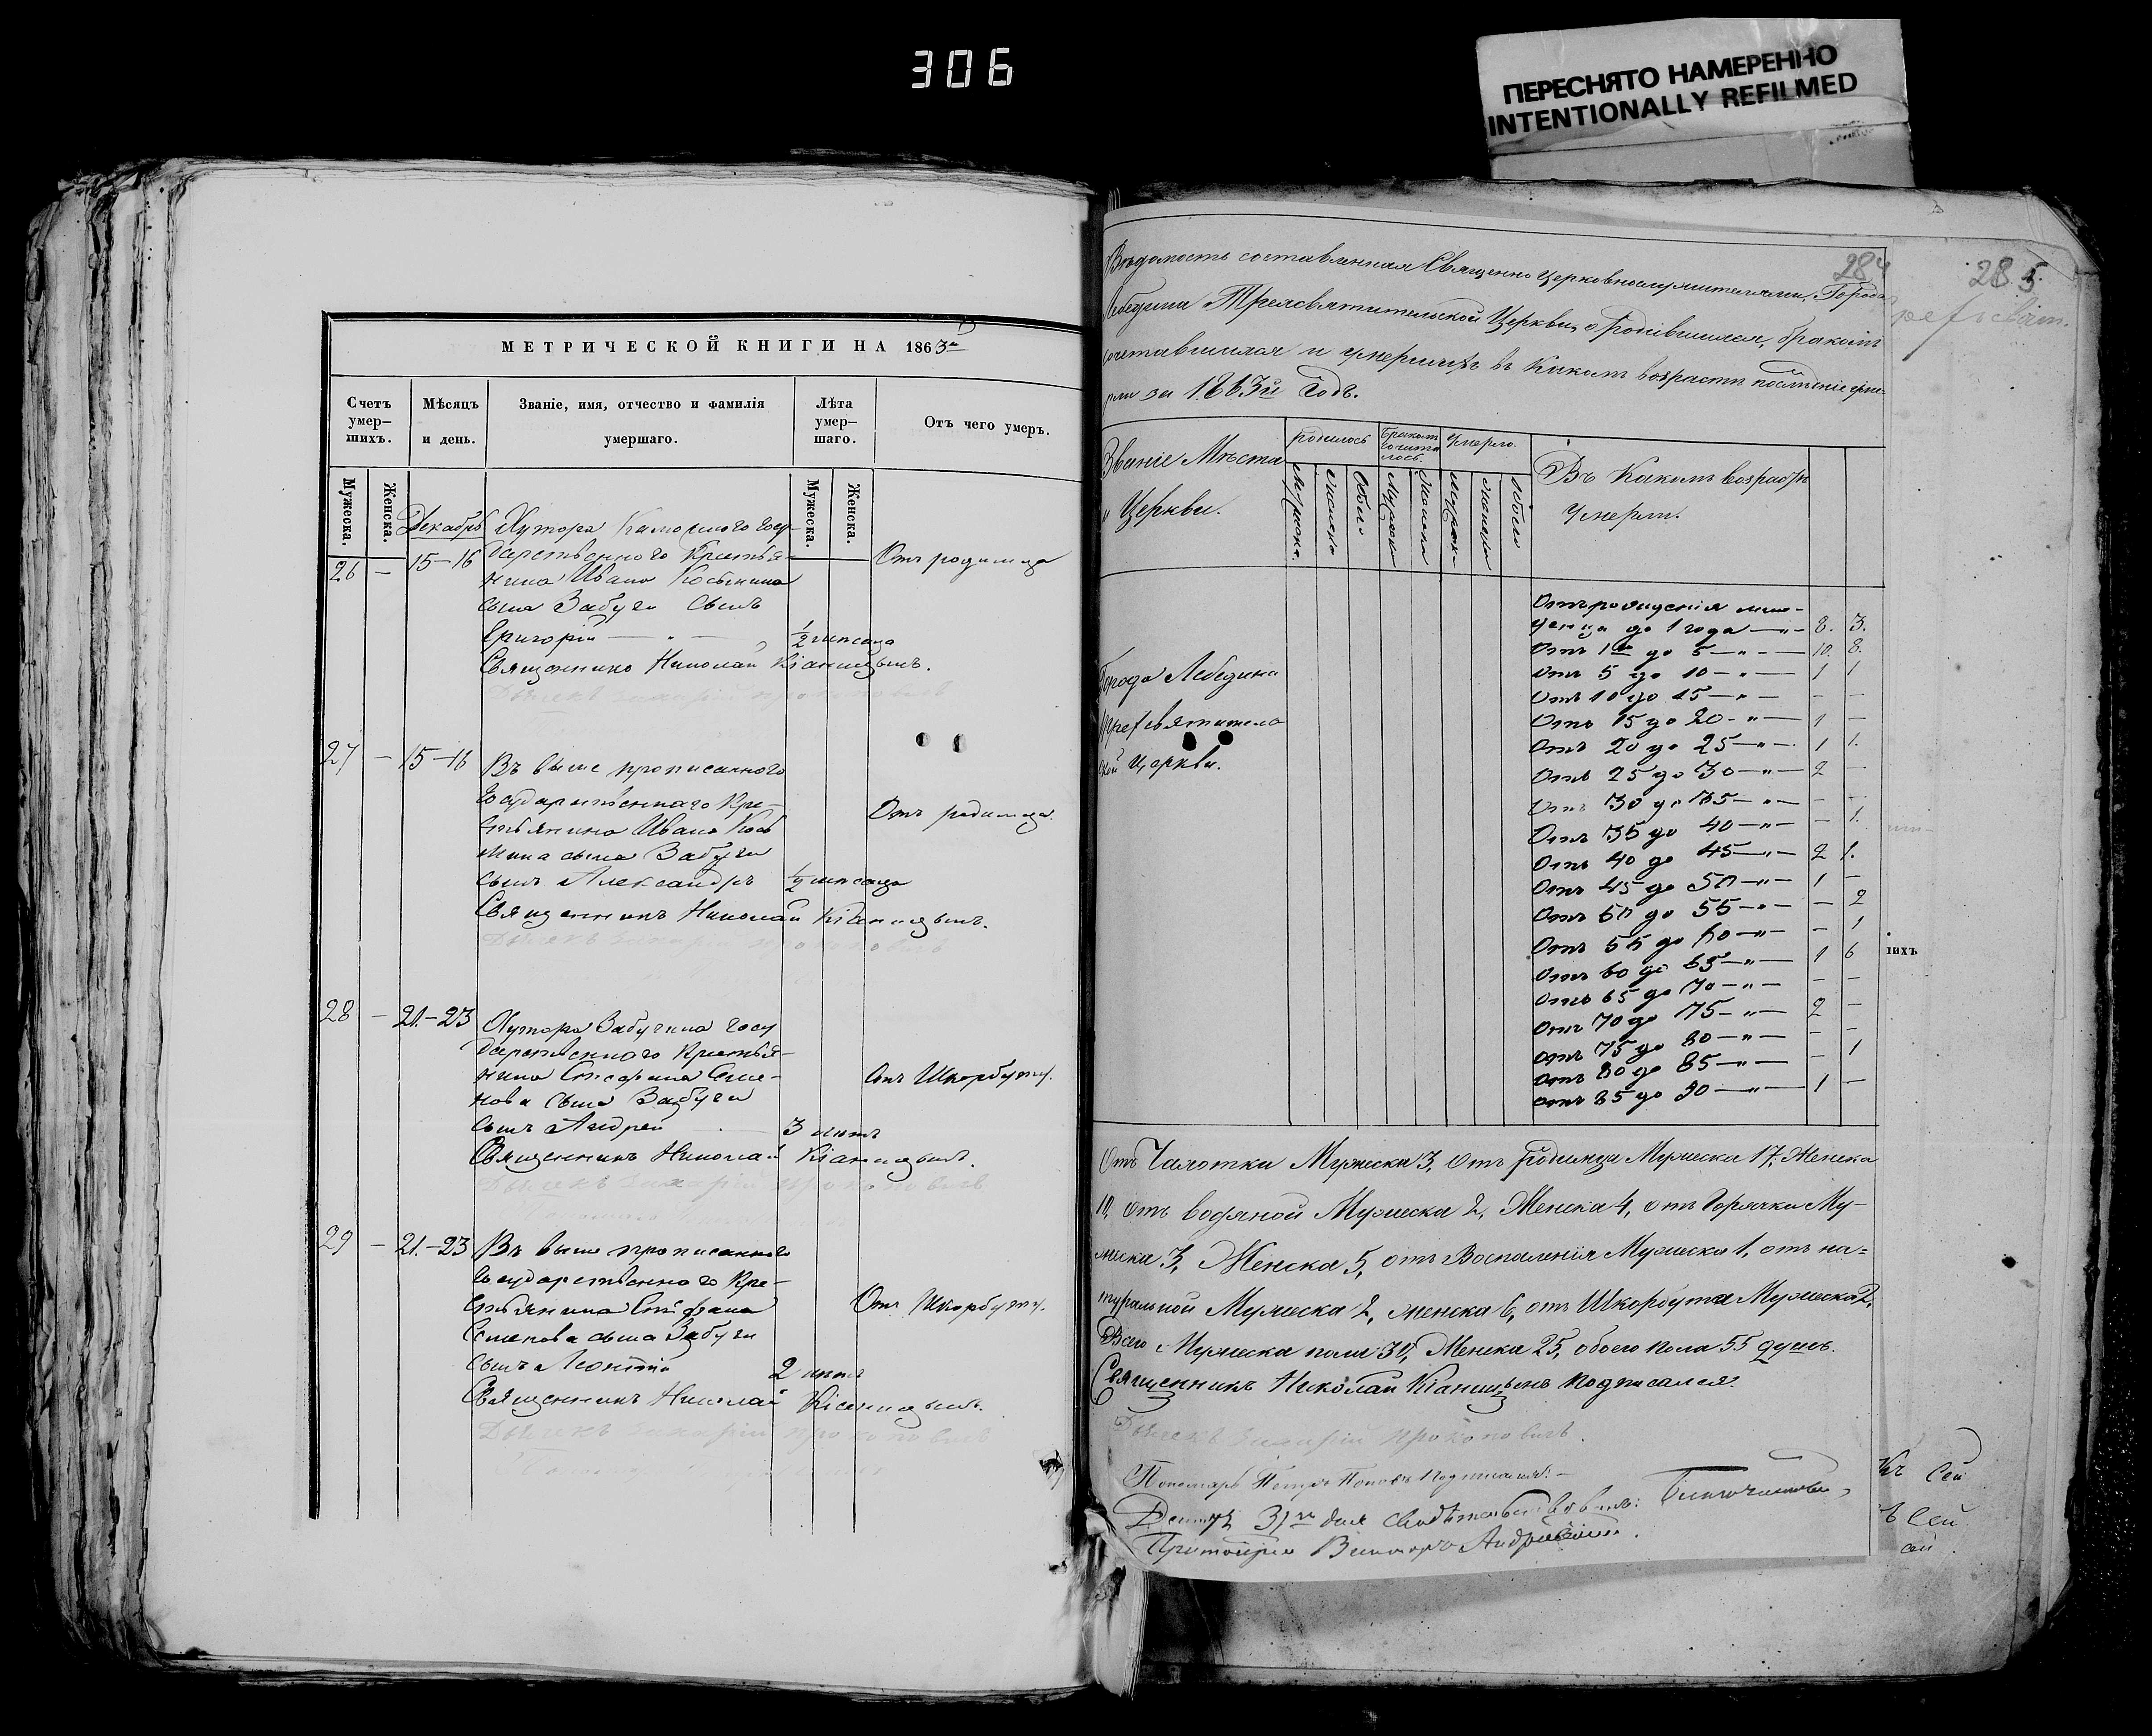 306
ПЕРЕСНЯТО НАМЕРЕННО
INTENTIONALLY REFILMED
МЕТРИЧЕСКОЙ КНИГИ НА 1863й
Счетъ умер-шихъ.
Мѣсяцъ и день.
Званіе, имя, отчество и фамилія умершаго.
Лѣта умер-шаго.
Отъ чего умеръ.
Мужеска.
Женска.
Мужеска.
Женска.
Декабрь Хутора Каморного госу-
26 — 15–16 дарственного Крестья-
Отъ родимца
нина Ивана Косьмина
сына Забуги сынъ
Григорій — " — ½ мѣсяца
Священникъ Николай Кіаницынъ.
27 — 15–16 Въ выше прописанного
Государственнаго Кре-
Отъ родимца.
стьянина Ивана Кось
мина сына Забуги
сынъ Александръ ½ мѣсяца
Священникъ Николай Кіаницынъ.
28 — 21–23 Хутора Забугина госу
дарственного Крестья-
нина Стефана Семе-
Отъ Шкорбуту.
нова сына Забуги
сынъ Андрей — 3 лѣтъ
Священникъ Николай Кіаницынъ.
Дьячекъ Захарій Прокоповичъ
29 — 21–23 Въ выше прописанного
Государственного Кре-
стьянина Стефана
Отъ Шкорбуту.
Семенова сына Забуги
сынъ Леонтій 2 лѣтъ
Священникъ Николай Кіаницынъ.
Дьячекъ Захарій Прокоповичъ
284
285.
Вѣдомость составленная Священно церковнослужителями, Города
Лебедина Трехсвятительской Церкви, о родившихся, бракомъ
сочетавшихся и умершихъ въ какомъ возрастѣ послѣдніе уме-
рли за 1863й годъ.
Званіе Мѣста
" Церкви.
родилось
Бракомъ сочета лось.
Умерло.
Въ Какомъ возрастѣ
Умерли.
Города Лебедина
Трехсвятитель
ской Церкви.
Отъ рожденія мла-
денца до 1 года — " — 8. 3.
Отъ 1го до 5 — " — 10. 8.
Отъ 5 до 10 — " — 1 1
Отъ 10 до 15 — " — – –
Отъ 15 до 20 — " — 1 –
Отъ 20 до 25 — " — 1 1.
Отъ 25 до 30 — " — 2 –
Отъ 30 до 35 — " — – –
Отъ 35 до 40 — " — – 1.
Отъ 40 до 45 — " — 2 1.
Отъ 45 до 50 — " — 1 –
Отъ 50 до 55 — " — – 2
Отъ 55 до 60 — " — – 1
Отъ 60 до 65 — " — 1 6
Отъ 65 до 70 — " — – –
Отъ 70 до 75 — " — 2 –
Отъ 75 до 80 — " — – –
Отъ 80 до 85 — " — – 1
Отъ 85 до 90 — " — 1 –
Отъ Чахотки Мужеска 3, Отъ родимца Мужеска 17, Женска
10, отъ водяной Мужеска 2, Женска 4, отъ Горячки Му-
жеска 3, Женска 5, отъ Воспаленія Мужеска 1, отъ на=
туральной Мужеска 2, женска 6, отъ Шкорбута Мужеска 2,
Всего Мужеска пола 30, Женска 25, обоего пола 55 душъ.
Священникъ Николай Кіаницынъ подписался.
Дьячекъ Захарій Прокоповичъ.
Пономарь Петръ Поповъ подписался:—
31го дня свидѣтельствовалъ:
Протоіерей Викторъ
ихъ
сей
сей
сей